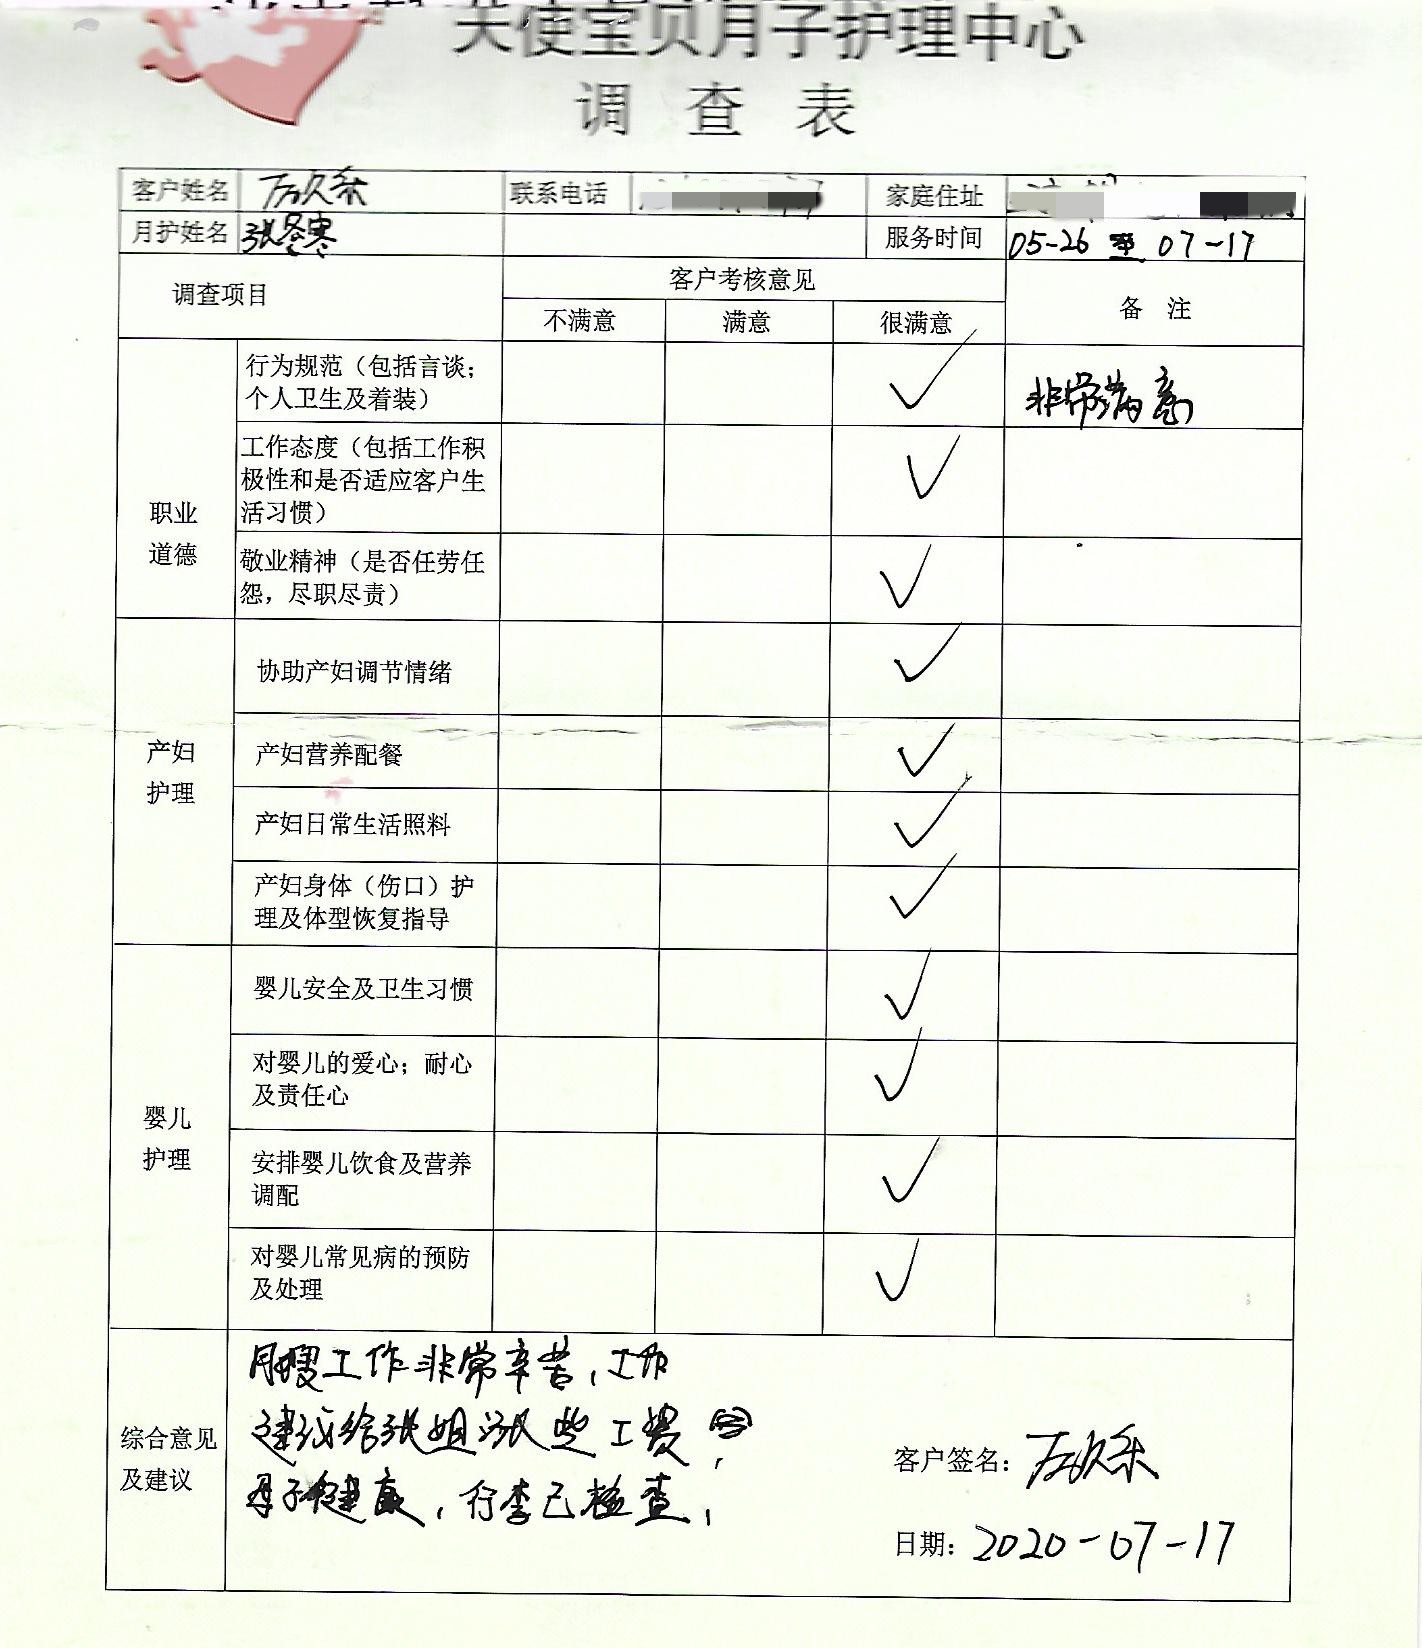 天使宝贝月子护理中心
调 查 表
客户姓名 联系电话 家庭住址
月护姓名 张冬寒 服务时间 05-26 至 07-17
调查项目 客户考核意见 备 注
不满意 满意 很满意
职业
道德
行为规范（包括言谈；
个人卫生及着装）
✓ 非常满意
工作态度（包括工作积
极性和是否适应客户生
活习惯）
✓
敬业精神（是否任劳任
怨，尽职尽责）
✓
产妇
护理
协助产妇调节情绪 ✓
产妇营养配餐 ✓
产妇日常生活照料 ✓
产妇身体（伤口）护
理及体型恢复指导
✓
婴儿
护理
婴儿安全及卫生习惯 ✓
对婴儿的爱心；耐心
及责任心
✓
安排婴儿饮食及营养
调配
✓
对婴儿常见病的预防
及处理
✓
综合意见
及建议
月嫂工作非常辛苦，工作
建议给张姐涨些工费，
母子健康，行李已检查，
客户签名：
日期：2020-07-17